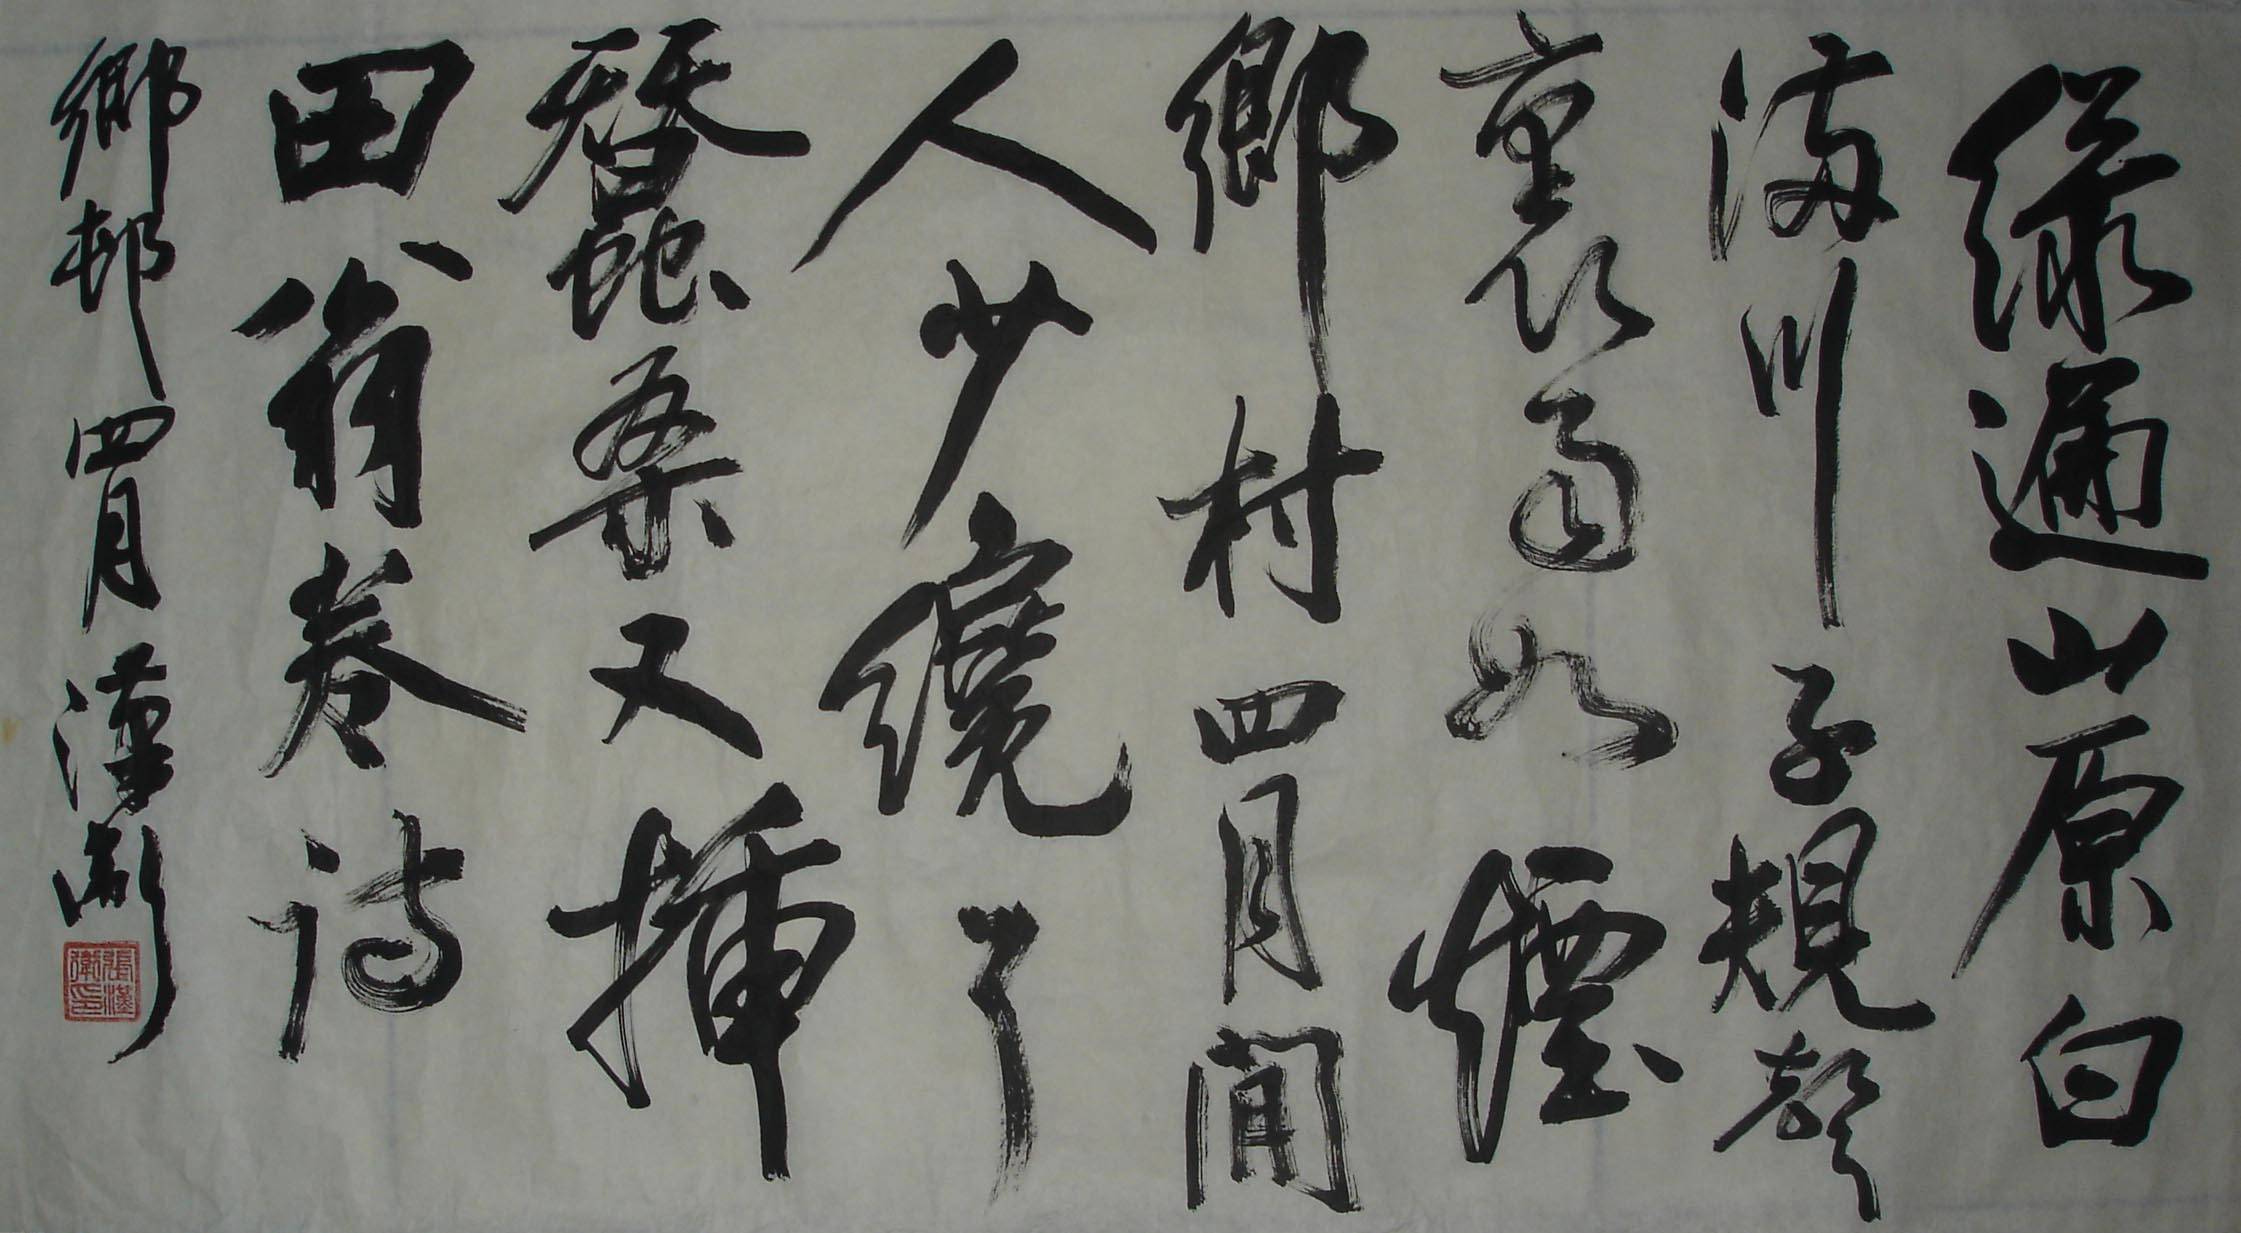 綠遍山原白
滿川子規聲
裏雨如煙
鄉村四月閒
人少纔了
蠶桑又插
田翁卷詩
鄉邨四月漢衛
張漢衛印